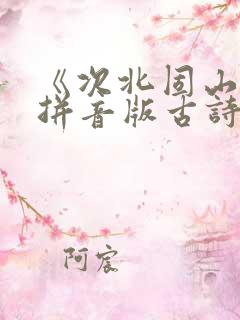 《次北固山
拼音版古詩
阿宸